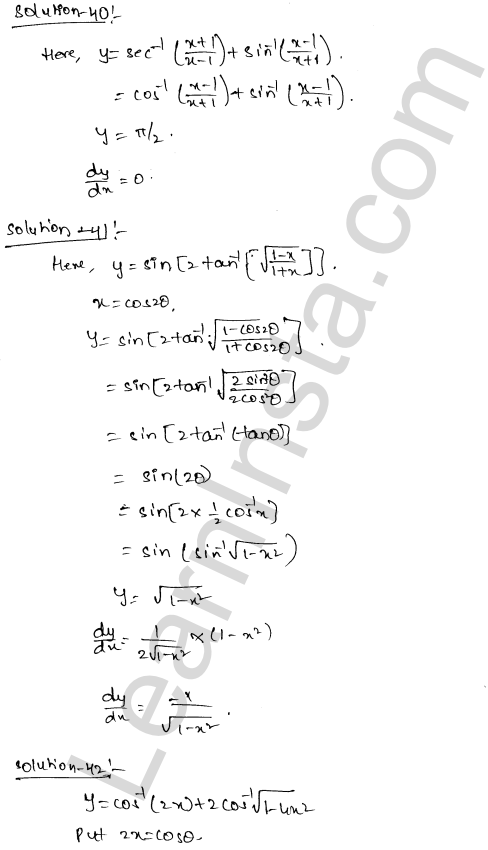 Solution-40!-
Here, y= sec⁻¹ (x+1/x-1) + sin⁻¹ (x-1/x+1).
= cos⁻¹ (x-1/x+1) + sin⁻¹ (x-1/x+1).
y = π/2.
dy/dx = 0.
Solution-41!-
Here, y = sin [2 tan⁻¹ [√1-x/1+x]].
x = cos2θ,
y = sin [2 tan⁻¹ √1-cos2θ/1+cos2θ].
= sin [2 tan⁻¹ √2sin²θ/2cos²θ]
= sin [2 tan⁻¹ (tanθ)]
= sin(2θ)
= sin [2 x 1/2 cos⁻¹x]
= sin (sin⁻¹ √1-x²)
y = √1-x²
dy/dx = 1/2√1-x² x (1-x²)
dy/dx = -x/√1-x².
Solution-42!-
y = cos⁻¹ (2x) + 2 cos⁻¹ √1-4x²
Put 2x = cosθ.
LearnInsta.com